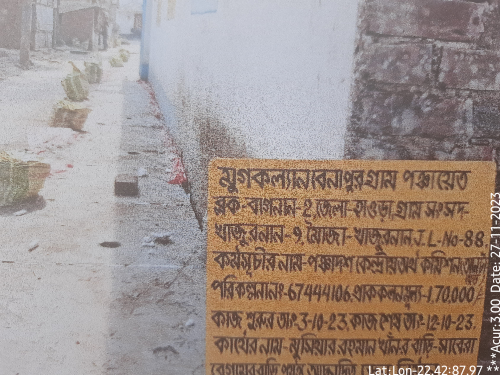 মুগকল্যান বেনাপুর গ্রাম পঞ্চায়েত
ব্লক-বাগনান-2, জেলা-হাওড়া, গ্রাম সংসদ-
খাজুরনান-9, মৌজা-খাজুরনান J.L-No-88,
কর্মসূচীর নাম-পঞ্চাদশ কেন্দ্রীয় অর্থ কমিশন
পরিকল্পনা নং-67444106, প্রাককলন মূল্য-1,70,000/
কাজ শুরুর তাং-3-10-23, কাজ শেষ তাং-12-10-23,
কাযের নাম-মুসিয়ার রহমান খানের বাড়ি-সাবেরা
বেগমের বাড়ি পর্যন্ত
Lat:Lon-22.42:87.97
***Acur:3.00 Date: 27-11-2023